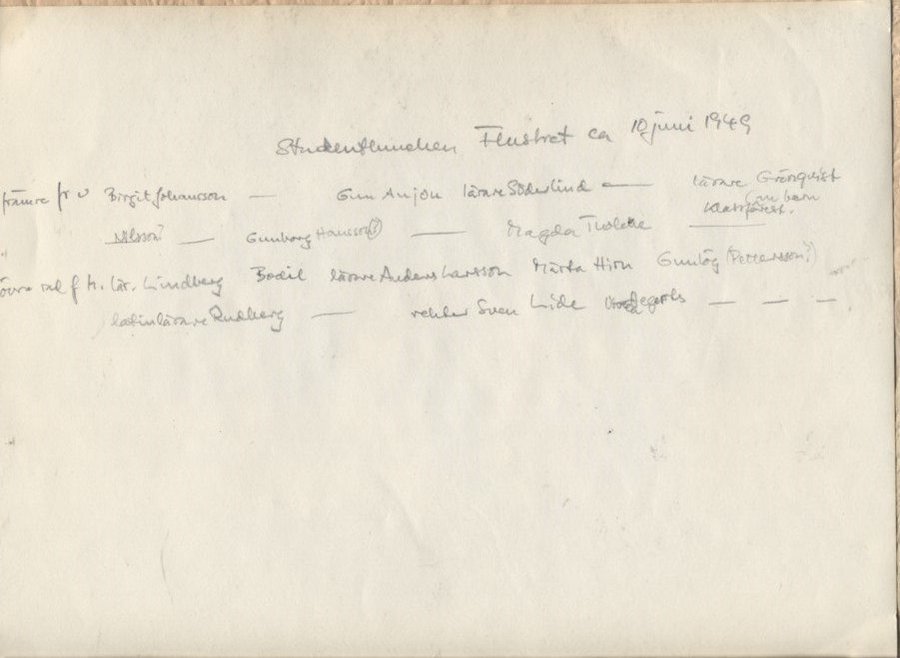 Studentlunchen Flustret ca 10 juni 1949
främre fr v Birgit Johansson — Gun Anjou lärare Söderlind — lärare Grönquist
Nilsson? — Gunborg Hansson(?) — Magda
Klassförest.
övre rad f h. lär. Lindberg Bodil lärare Anders Larsson Märta Hirn Gunlög (Pettersson?)
latinlärare Rudberg — rektor Sven Lide — — —